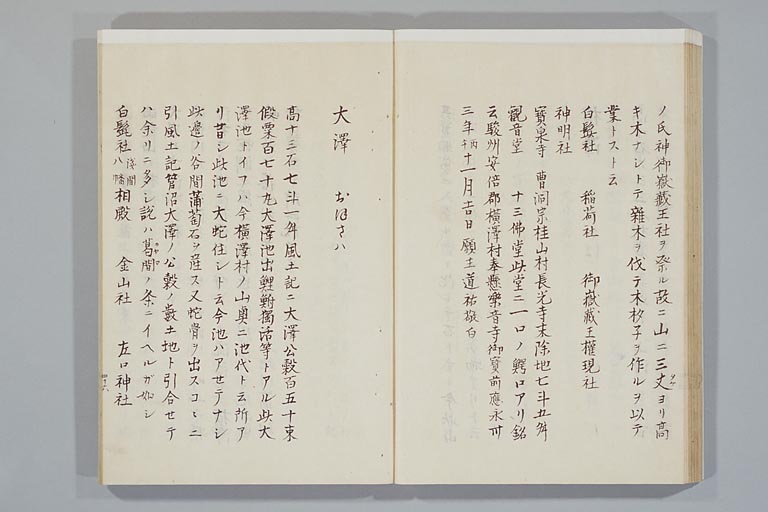 ノ氏神御嶽藏王社ヲ祭ル故ニ山ニ三丈ヨリ高
キ木ナシトテ雜木ヲ伐テ木杪子ヲ作ルヲ以テ
業トスト云
白髭社 稲荷社 御嶽藏王權現社
神明社
寳泉寺 曹洞宗桂山村長光寺末除地七斗五舛
觀音堂 十三佛堂此堂ニ一口ノ鰐口アリ銘
云駿州安倍郡横澤村奉懸樂音寺御寳前應永卅
三年丙午十一月吉日願主道祐敬白
大澤 おほさハ
高十三石七斗一舛風土記ニ大澤公穀百五十束
假粟百七十九大澤池出鯉鮒獨活等トアル此大
澤池トイフハ今横澤村ノ山奥ニ池代ト云所ア
リ昔シ此池ニ大蛇住シト云今池ハアセテナシ
此邊ノ谷間蒲萄石ヲ産ス又蛇骨ヲ出スコヽニ
引風土記菅沼大澤ノ公穀ノ藪土地ト引合セテ
ハ余リニ多シ説ハ葛間ノ条ニイヘルガ如シ
白髭社ハ淺間八幡相殿 金山社 左口神社